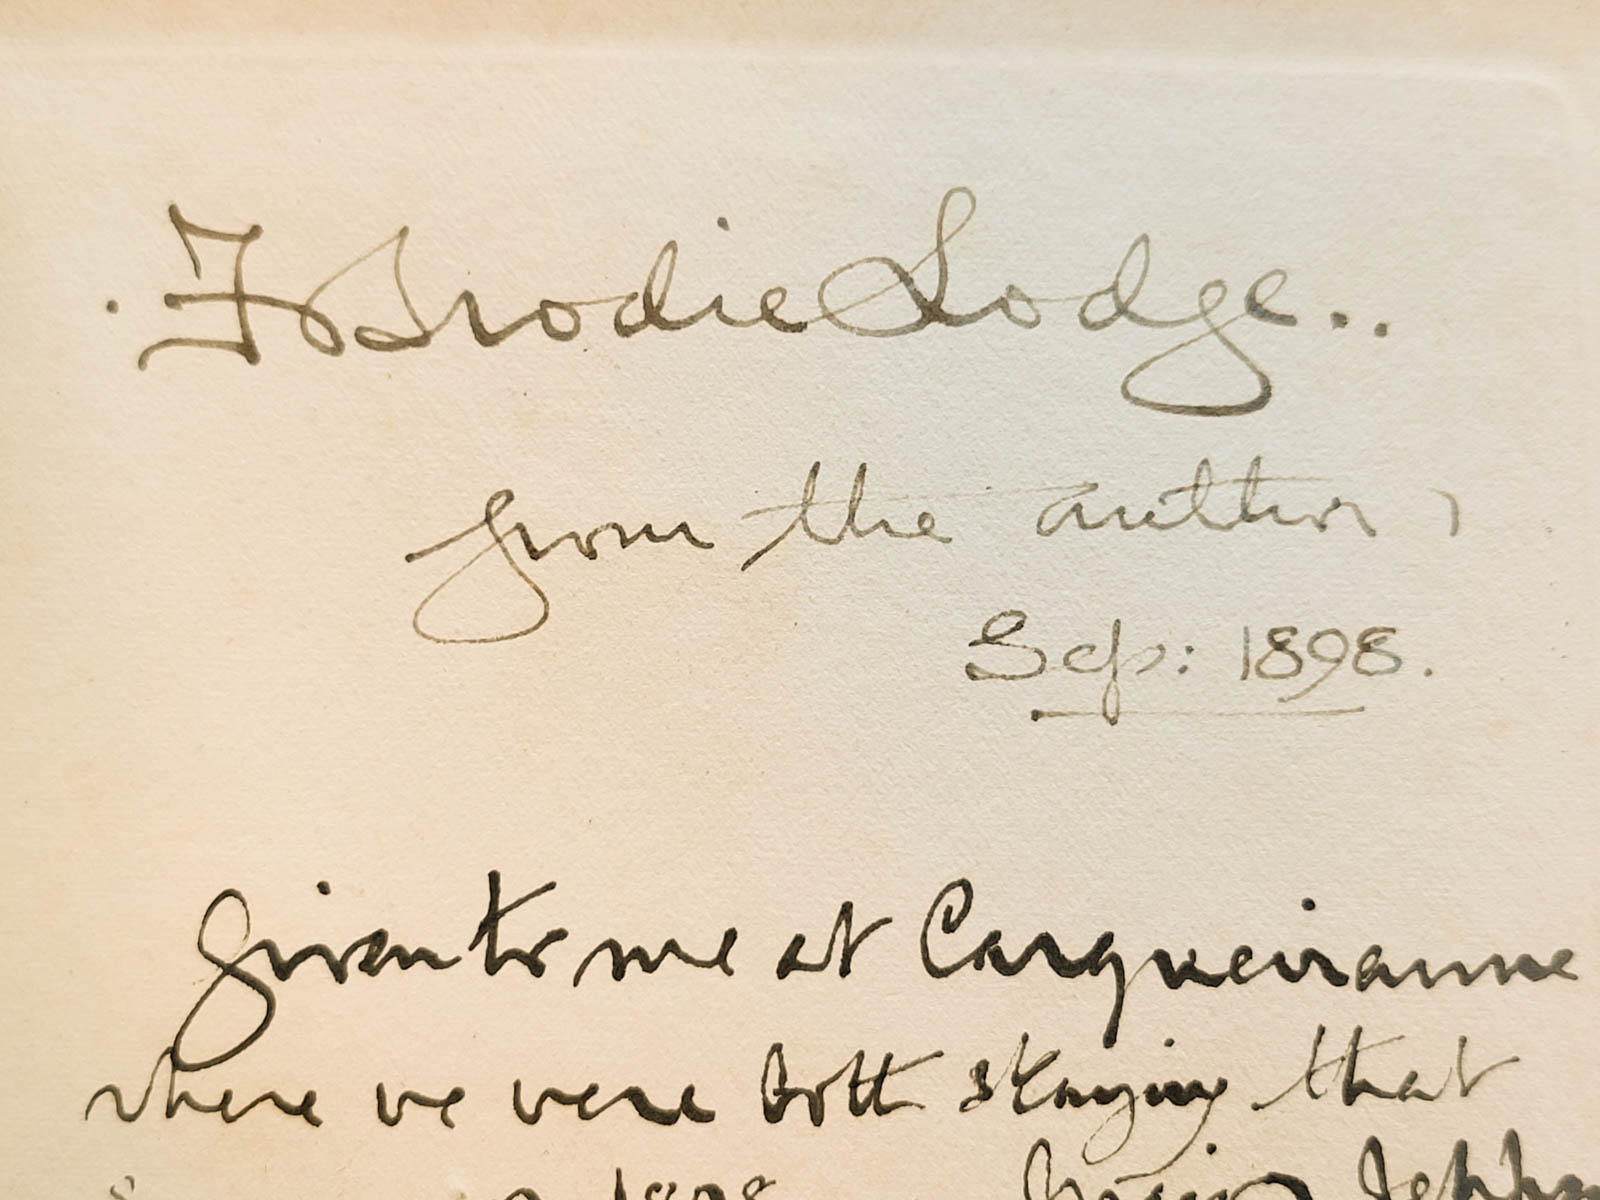 F Brodie Lodge..
from the author,
Sep: 1898.
Given to me at Carqueiranne
where we were both staying that
1898